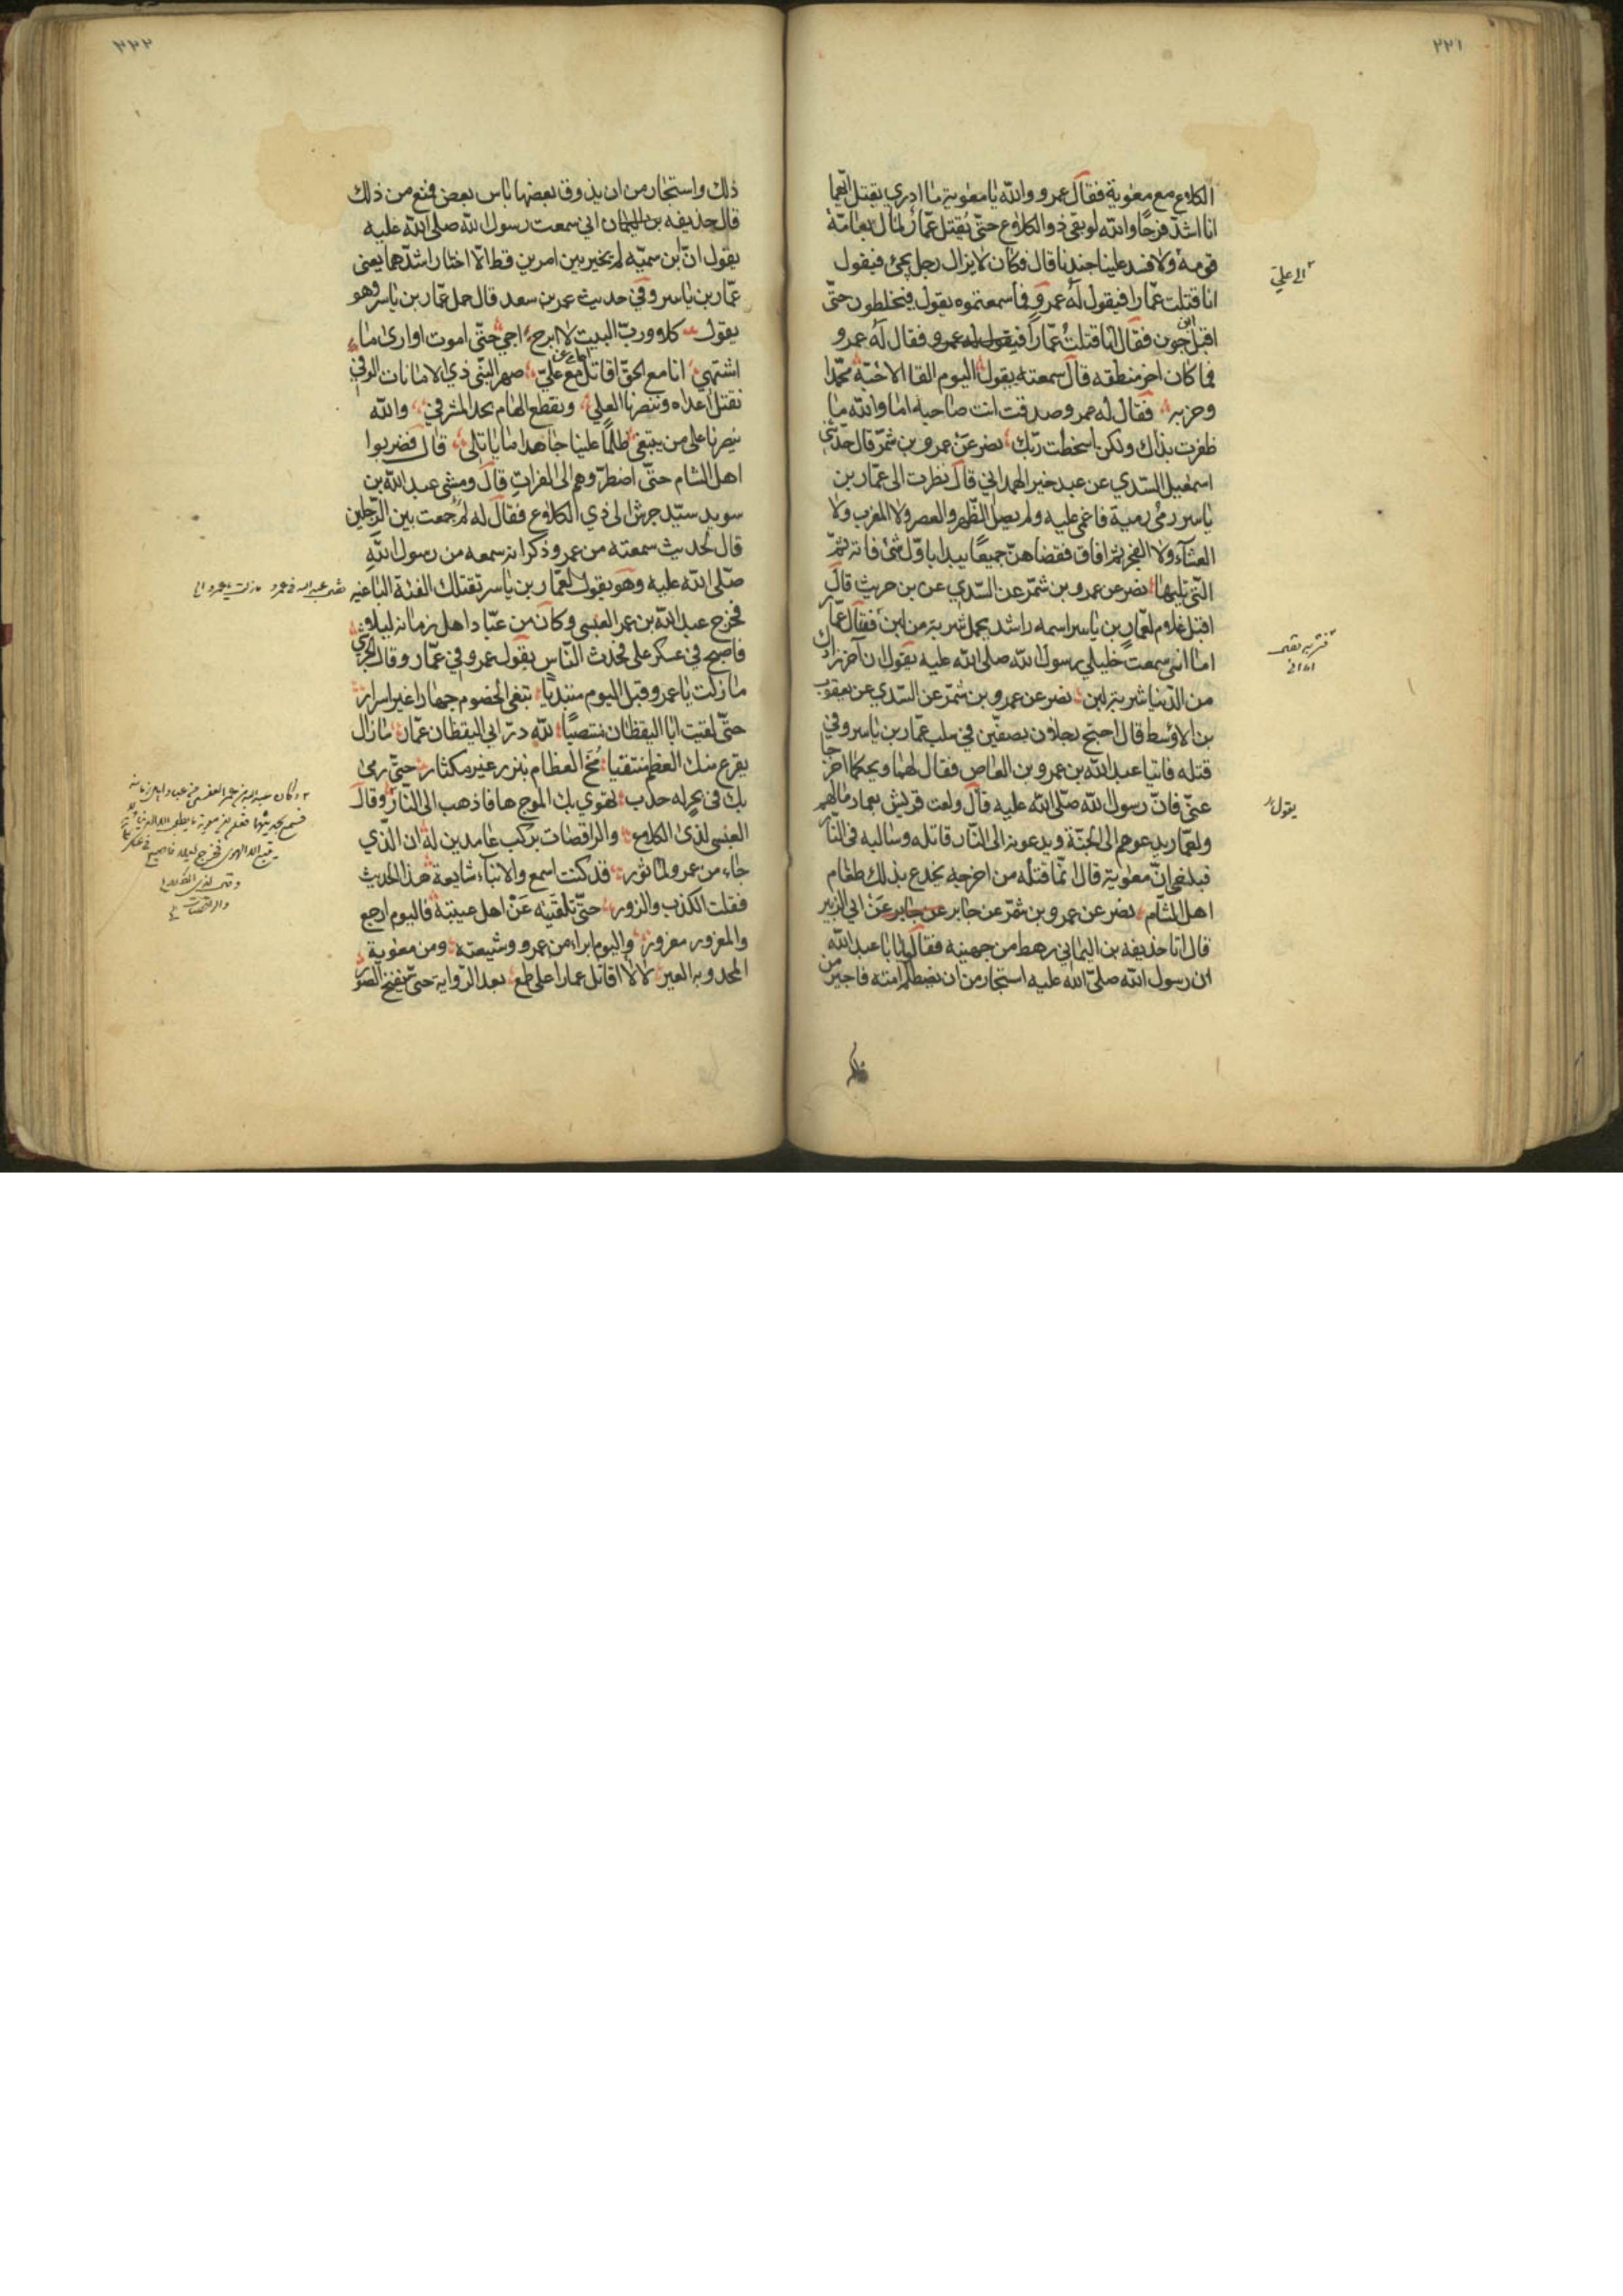 ٢٢١
الكلاع مع معوية فقال عمرو والله يا معوية ما ادري بقتل ايهما
انا اشد فرحا والله لو بقى ذو الكلاع حتى يقتل عمار لمال بعامة
قومه ولافسد علينا جندنا قال فكان لا يزال رجل يجئ فيقول
الى علي
انا قتلت عمارا فيقول له عمرو فما سمعتموه يقول فيخلطون حتى
اقبل ابن جون فقال انا قتلت عمارا فيقول له عمرو فقال له عمرو
فما كان اخر منطقه قال سمعته يقول اليوم القا الاحبة محمدا
وحزبه فقال له عمرو صدقت انت صاحبه اما والله ما
ظفرت بذاك ولكن اسخطت ربك نصر عن عمرو بن شمر قال حدثني
اسمعيل السدي عن عبد خير الهمداني قال نظرت الى عمار بن
ياسر رمي رمية فاغمي عليه ولم يصل الظهر والعصر ولا المغرب ولا
العشاء ولا الفجر ثم افاق فقضاهن جميعا يبدا باول شئ فاته ثم
التي تليها نصر عن عمرو بن شمر عن السدي عن بن حريث قال
اقبل غلام لعمار بن ياسر اسمه راشد يحمل شربة من لبن فقال عمار
اما اني سمعت خليلي رسول الله صلى الله عليه يقول ان آخر زادك
من الدنيا شربة لبن نصر عن عمرو بن شمر عن السدي عن يعقوب
بن الاوسط قال احتج رجلان بصفين في سلب عمار بن ياسر وفي
قتله فاتيا عبد الله بن عمرو بن العاص فقال لهما ويحكما اخرجا
عني فان رسول الله صلى الله عليه قال ولعت قريش بعمار مالهم
يقول
ولعمار يدعوهم الى الجنة ويدعونه الى النار قاتله وسالبه في النار
فبلغني ان معوية قال انما قتله من اخرجه يخدع بذلك طغام
اهل الشام نصر عن عمرو بن شمر عن جابر عن جابر عن ابي الزبير
قال اتا حذيفه بن اليماني رهط من جهينه فقالوا يا با عبد الله
ان رسول الله صلى الله عليه استجار من ان تصطلم امته فاجير من
٢٢٢
ذلك واستجار من ان يذوق بعضها باس بعض فمنع من ذلك
قال حذيفه بن اليمان اني سمعت رسول الله صلى الله عليه
يقول ان بن سميه لم يخير بين امرين قط الا اختار اشدهما يعنى
عمار بن ياسر وفي حديث عمر بن سعد قال حمل عمار بن ياسر وهو
يقول كلا ورب البيت لا ابرح اجي حتى اموت او ارى ما
اشتهي انا مع الحق اقاتل مع علي صهر النبي ذي الامانات الوفي
نقتل اعداه وينصرنا العلي ونقطع الهام بحد المشرفي والله
ينصرنا على من يبتغى ظلما علينا جاهدا ما ياتلى قال فضربوا
اهل الشام حتى اضطروهم الى الفرات قال ومشى عبد الله بن
سويد سيد جرش الى ذي الكلاع فقال له لم جمعت بين الرجلين
قال لحديث سمعته من عمرو ذكر انه سمعه من رسول الله
صلى الله عليه وهو يقول لعمار بن ياسر تقتلك الفئة الباغيه
فخرج عبد الله بن عمر العنسي وكان من عباد اهل زمانه ليلا
فاصبح في عسكر علي فحدث الناس بقول عمرو في عمار وقال الجرشي
ما زلت يا عمرو قبل اليوم مبتديا تبغي الخصوم جهارا غير اسرار
حتى لقيت ابا اليقظان منتصبا لله در ابي اليقظان عمار ما زال
يقرع منك العظم منتقيا مخ العظام بنزر غير مكثار حتى رمى
بك في بحر له حدب تهوي بك الموج ها فاذهب الى النار وقال
العنسي لذي الكلاع والراقصات بركب عامدين له ان الذي
جاء من عمرو لماثور قد كنت اسمع والانباء شايعة هذا الحديث
فقلت الكذب والزور حتى تلقيته عن اهل عيبته فاليوم ارجع
والمغرور مغرور واليوم ابراء من عمرو وشيعته ومن معوية
المحدو به العير لا لا اقاتل عمارا على طمع بعد الرواية حتى ينفخ الصور